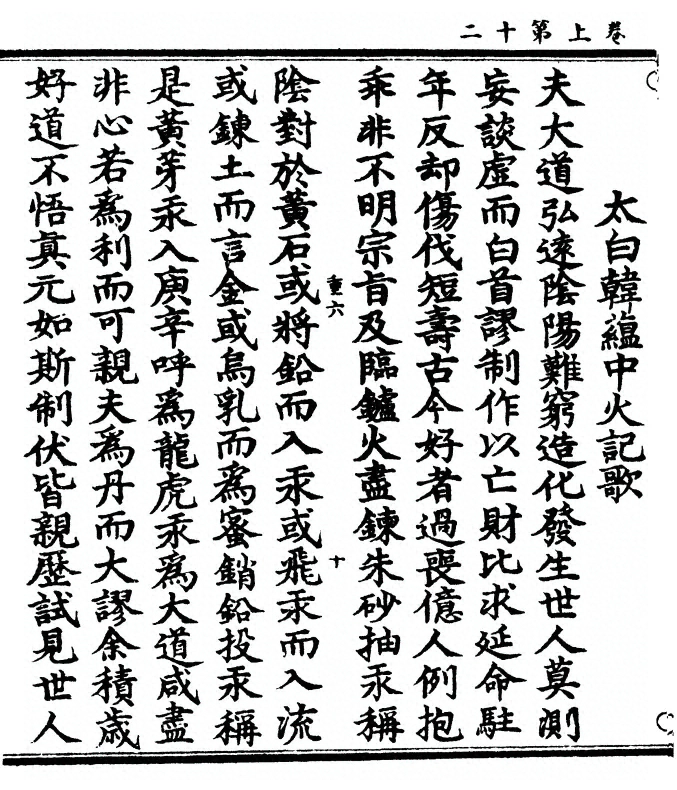 卷上第十二
太白韓蘊中火記歌
夫大道弘遠陰陽難窮造化發生世人莫測
妄談虛而白首謬制作以亡財比求延命駐
年反却傷伐短壽古今好者過喪億人例抱
乖非不明宗旨及臨鑪火盡鍊朱砂抽汞稱
重六
十
陰對於黃石或將鉛而入汞或飛汞而入流
或鍊土而言金或烏乳而爲蜜銷鉛投汞稱
是黃芽汞入庚辛呼爲龍虎汞爲大道咸盡
非心若爲利而可親夫爲丹而大謬余積歲
好道不悟真元如斯制伏皆親歷試見世人